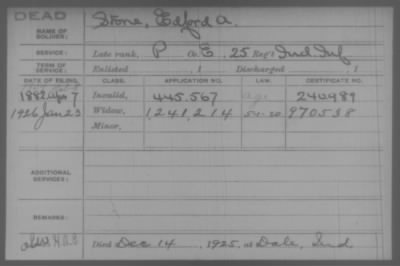 DEAD
NAME OF SOLDIER: Stone, Edford A.
SERVICE: Late rank, P Co. E, 25 Reg't Ind. Inf.
TERM OF SERVICE: Enlisted , 1 Discharged , 1
DATE OF FILING. CLASS. APPLICATION NO. LAW. CERTIFICATE NO.
1882 Apr 7 Invalid, 445.567 240989
1926 Jan 23 Widow, 1,241,214 970538
Minor,
ADDITIONAL SERVICES:
REMARKS:
Died Dec 14, 1925, at Dale, Ind